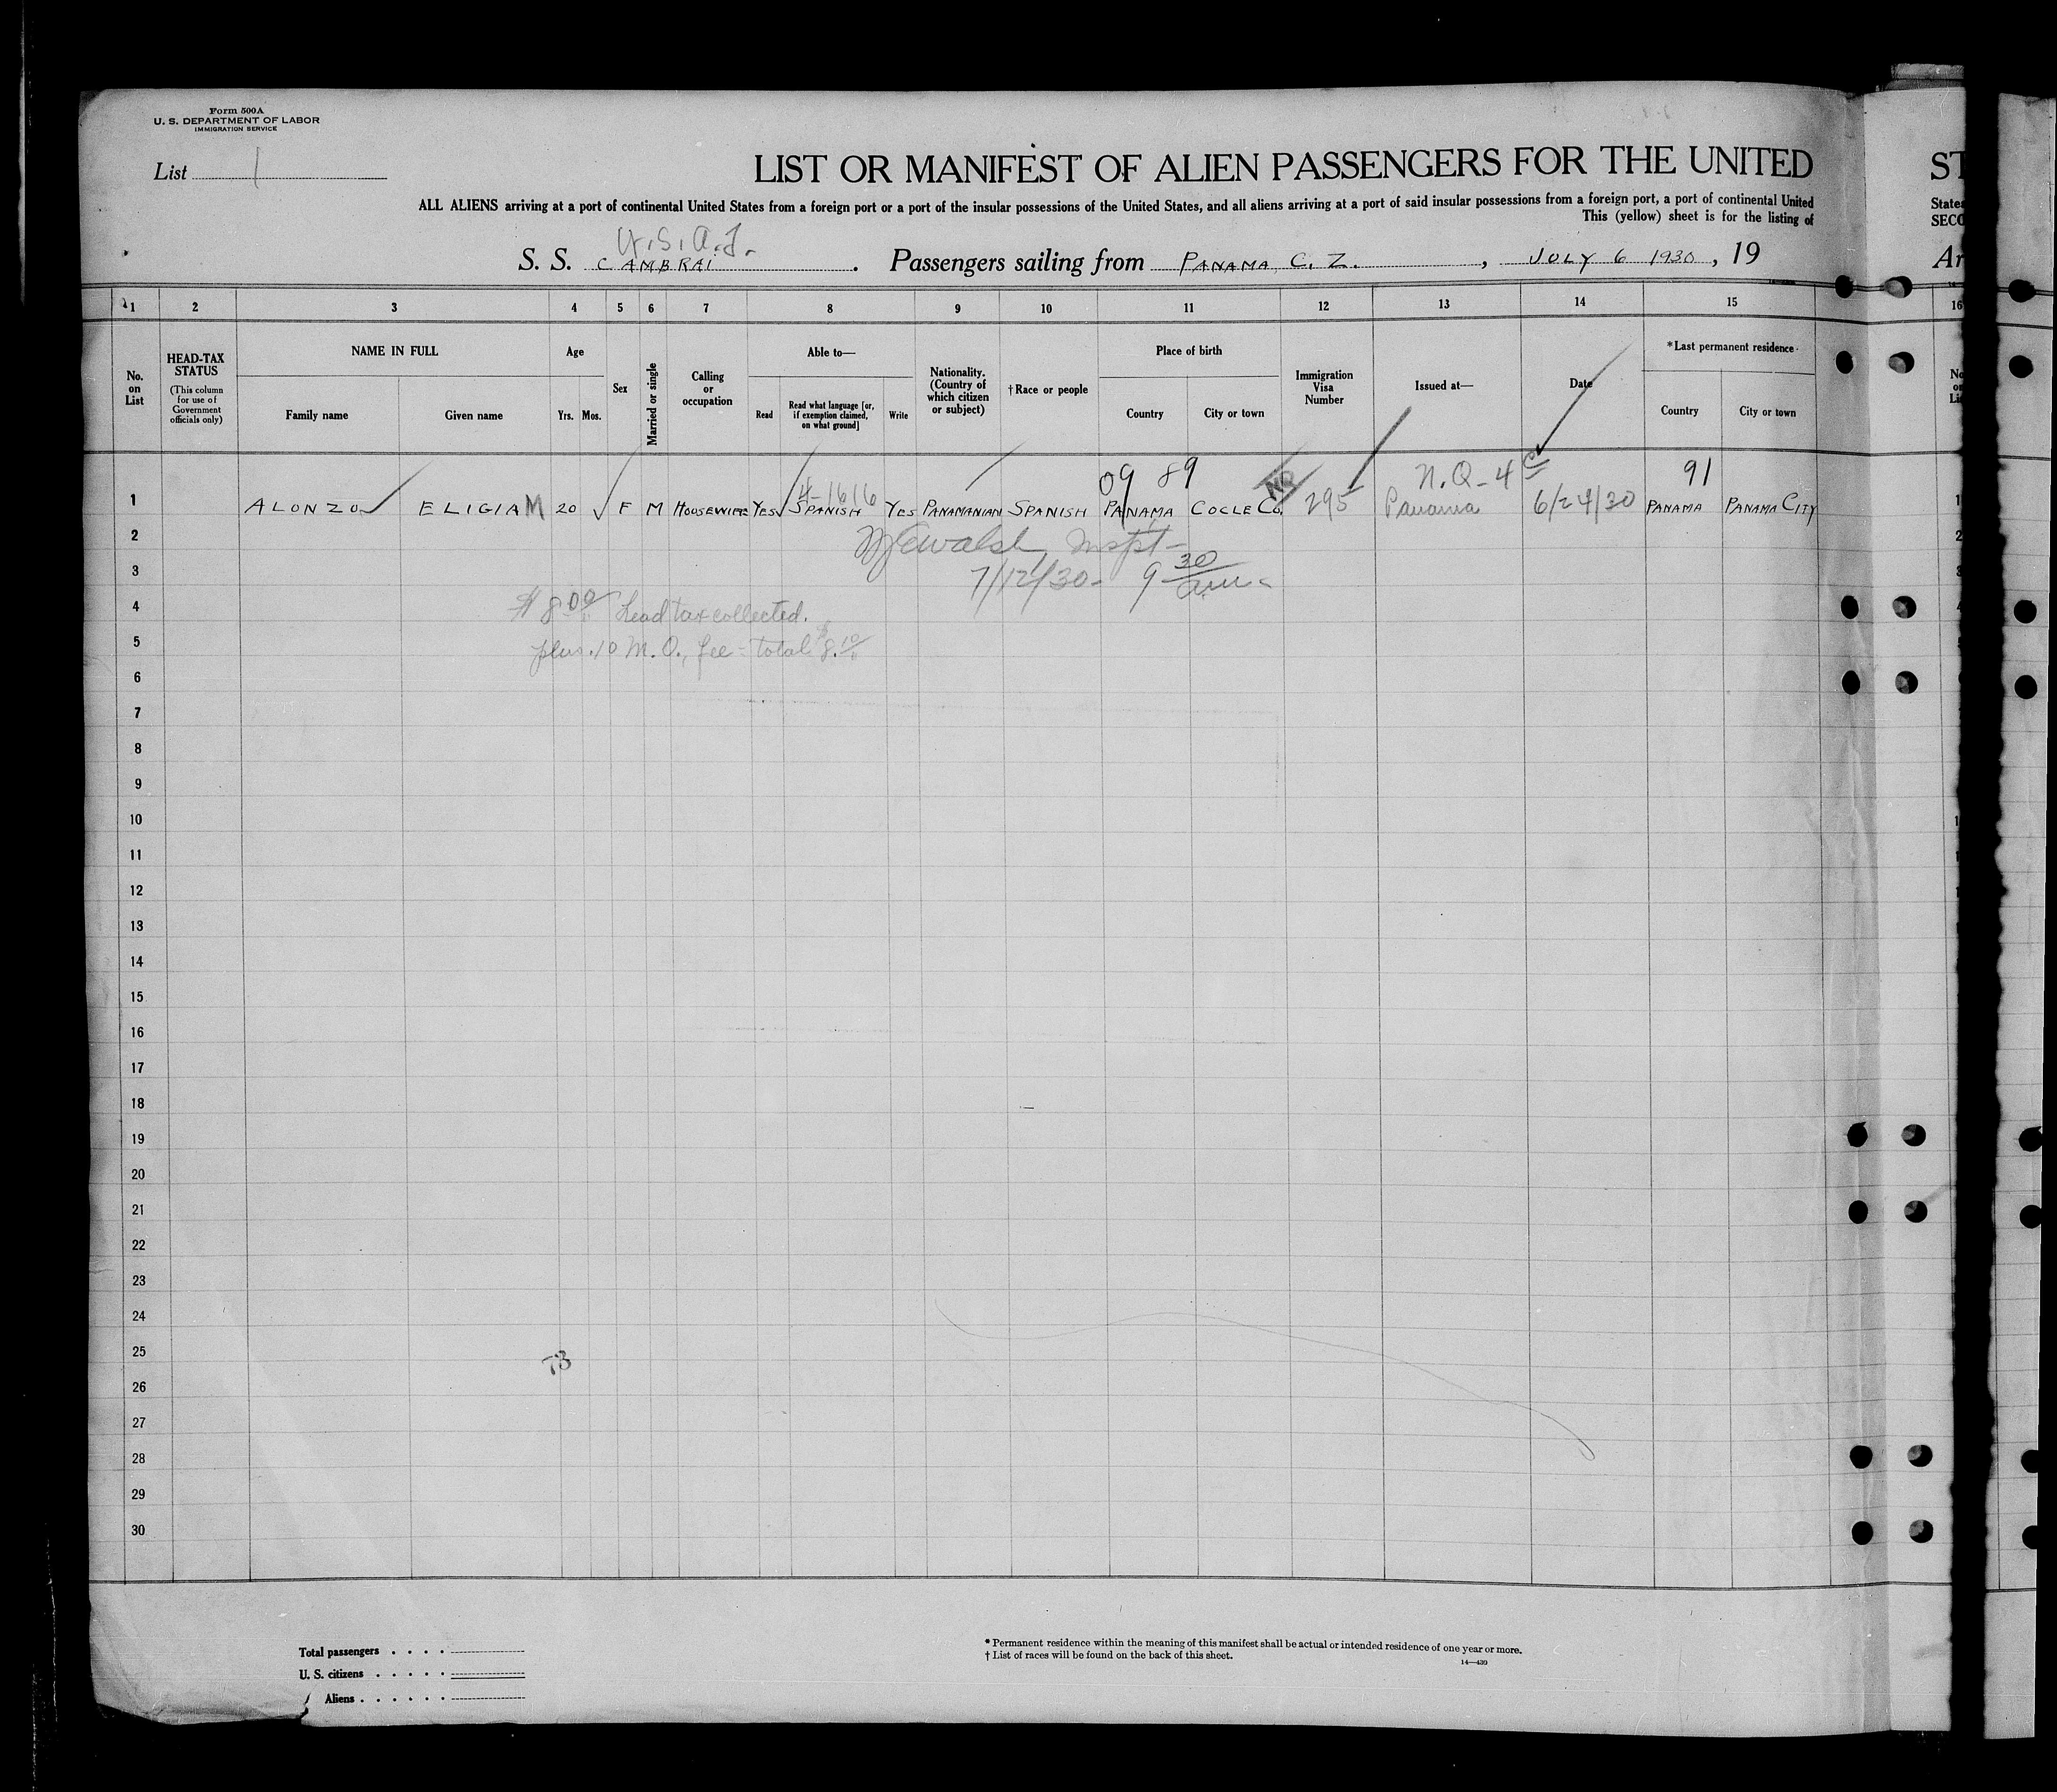 Form 500A
U. S. DEPARTMENT OF LABOR
IMMIGRATION SERVICE
List 1
LIST OR MANIFEST OF ALIEN PASSENGERS FOR THE UNITED
ST
ALL ALIENS arriving at a port of continental United States from a foreign port or a port of the insular possessions of the United States, and all aliens arriving at a port of said insular possessions from a foreign port, a port of continental United
States
This (yellow) sheet is for the listing of
SECO
U.S.A.T.
S. S. CAMBRAI. Passengers sailing from PANAMA, C. Z., JULY 6 1930, 19
Ar
1 2 3 4 5 6 7 8 9 10 11 12 13 14 15 16
No. on List
HEAD-TAX STATUS (This column for use of Government officials only)
NAME IN FULL
Family name
Given name
Age
Yrs. Mos.
Sex
Married or single
Calling or occupation
Able to—
Read
Read what language [or, if exemption claimed, on what ground]
Write
Nationality. (Country of which citizen or subject)
†Race or people
Place of birth
Country
City or town
Immigration Visa Number
Issued at—
Date
*Last permanent residence
Country
City or town
09 89 NQ N.Q-4 91
4-1616
1 ALONZO ELIGIA M 20 F M HOUSEWIFE YES SPANISH YES PANAMANIAN SPANISH PANAMA COCLE CO. 295 Panama 6/24/30 PANAMA PANAMA CITY 1
2 Walsh Inspt- 2
3 7/12/30- 9 30 am- 3
4 $8.00 Head tax collected.
5 plus .10 M.O., fee - total $8.10
6
7
8
9
10
11
12
13
14
15
16
17
18
19
20
21
22
23
24
25
73
26
27
28
29
30
Total passengers
U. S. citizens
Aliens
* Permanent residence within the meaning of this manifest shall be actual or intended residence of one year or more.
† List of races will be found on the back of this sheet.
14—430